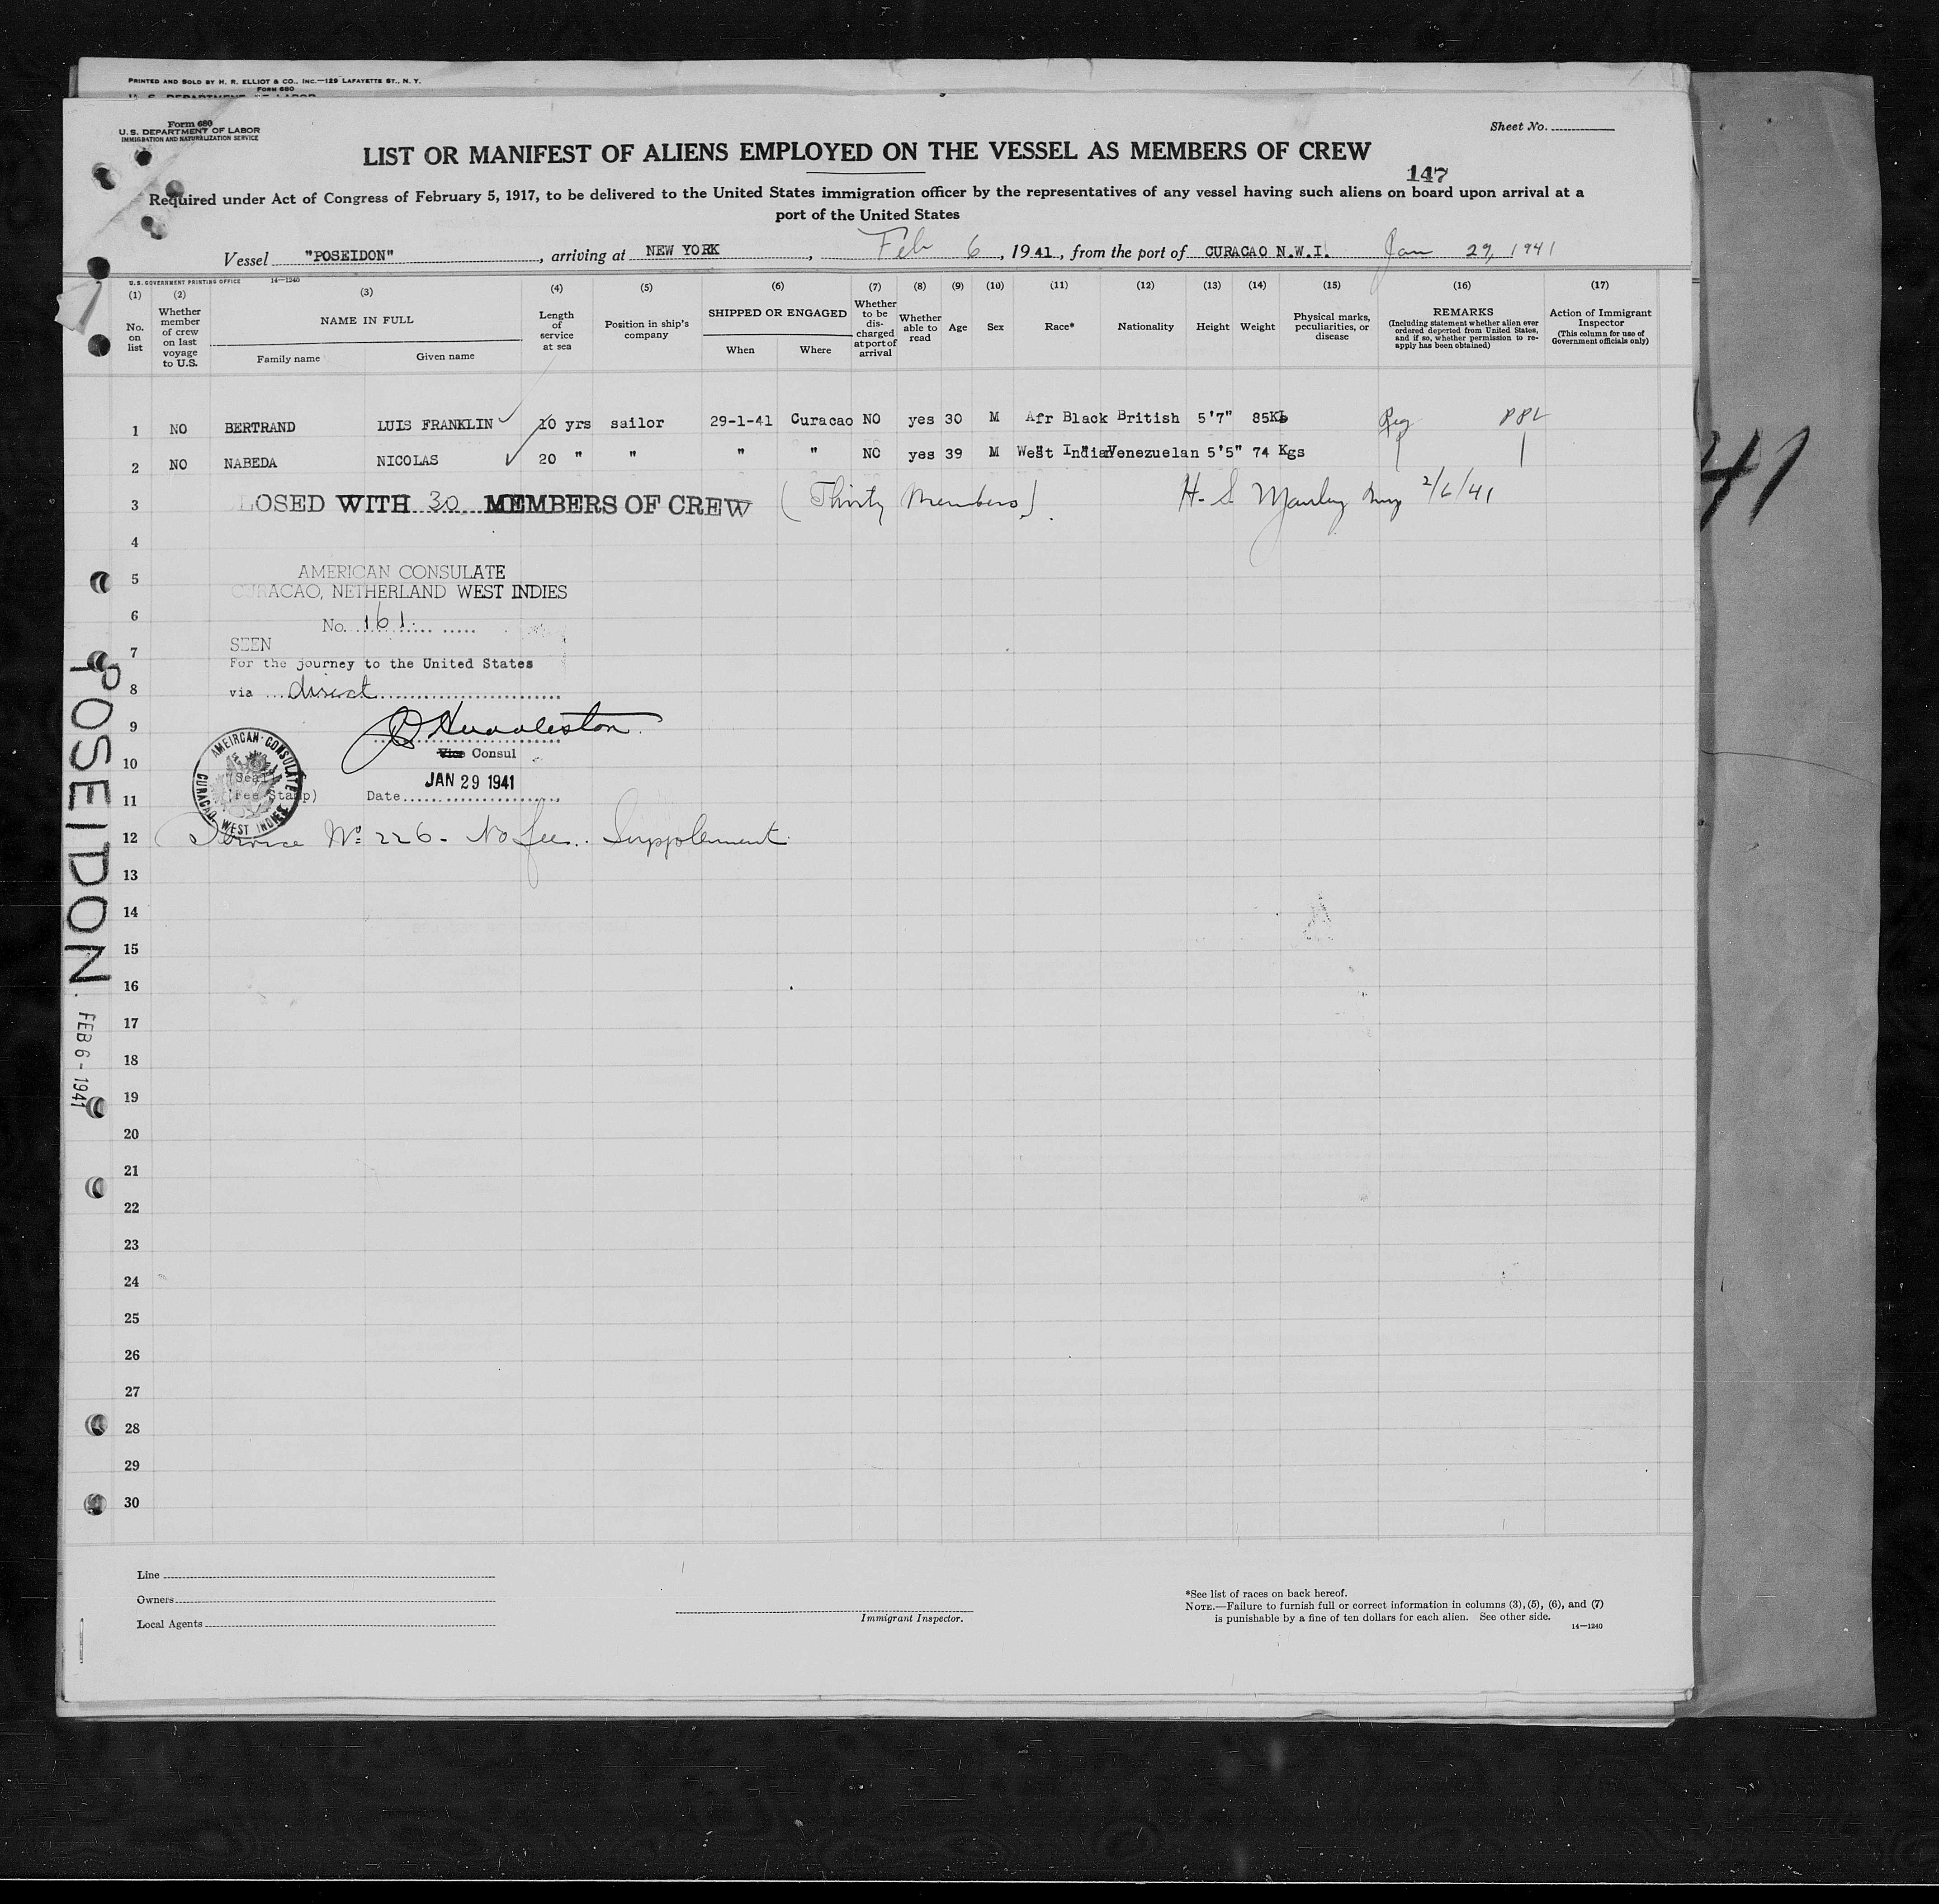 PRINTED AND SOLD BY H. R. ELLIOT & CO., INC.—129 LAFAYETTE ST., N. Y.
FORM 680
U. S. DEPARTMENT OF LABOR
Form 680
U.S. DEPARTMENT OF LABOR
IMMIGRATION AND NATURALIZATION SERVICE
Sheet No.
LIST OR MANIFEST OF ALIENS EMPLOYED ON THE VESSEL AS MEMBERS OF CREW
147
Required under Act of Congress of February 5, 1917, to be delivered to the United States immigration officer by the representatives of any vessel having such aliens on board upon arrival at a
port of the United States
Vessel "POSEIDON", arriving at NEW YORK, Feb 6, 1941, from the port of CURACAO N.W.I. Jan 29, 1941
U.S. GOVERNMENT PRINTING OFFICE 14—1240
(1) No. on list
(2) Whether member of crew on last voyage to U.S.
(3) NAME IN FULL Family name Given name
(4) Length of service at sea
(5) Position in ship's company
(6) SHIPPED OR ENGAGED When Where
(7) Whether to be discharged at port of arrival
(8) Whether able to read
(9) Age
(10) Sex
(11) Race*
(12) Nationality
(13) Height
(14) Weight
(15) Physical marks, peculiarities, or disease
(16) REMARKS (Including statement whether alien ever ordered deported from United States, and if so, whether permission to reapply has been obtained)
(17) Action of Immigrant Inspector (This column for use of Government officials only)
1 NO BERTRAND LUIS FRANKLIN 10 yrs sailor 29-1-41 Curacao NO yes 30 M Afr Black British 5'7" 85
2 NO NABEDA NICOLAS 20 " " " " NO yes 39 M West Indian Venezuelan 5'5" 74 Kgs
3 LOSED WITH 30 MEMBERS OF CREW (Thirty Members). H. S. Manley Insp 2/6/41
4
5 AMERICAN CONSULATE
CURACAO, NETHERLAND WEST INDIES
6 No. 161
7 SEEN
For the journey to the United States
8 via direct
9 Huddleston
10 Vice Consul
JAN 29 1941
11 (Fee Stamp) Date
(Seal)
AMEIRCAN CONSULATE
CURACAO, WEST INDIES
12 Service No. 226 - No fee. Supplement
13
14
15
16
17
18
19
20
21
22
23
24
25
26
27
28
29
30
POSEIDON
FEB 6 - 1941
41
Line
Owners
Local Agents
Immigrant Inspector.
*See list of races on back hereof.
NOTE.—Failure to furnish full or correct information in columns (3), (5), (6), and (7)
is punishable by a fine of ten dollars for each alien. See other side.
14—1240